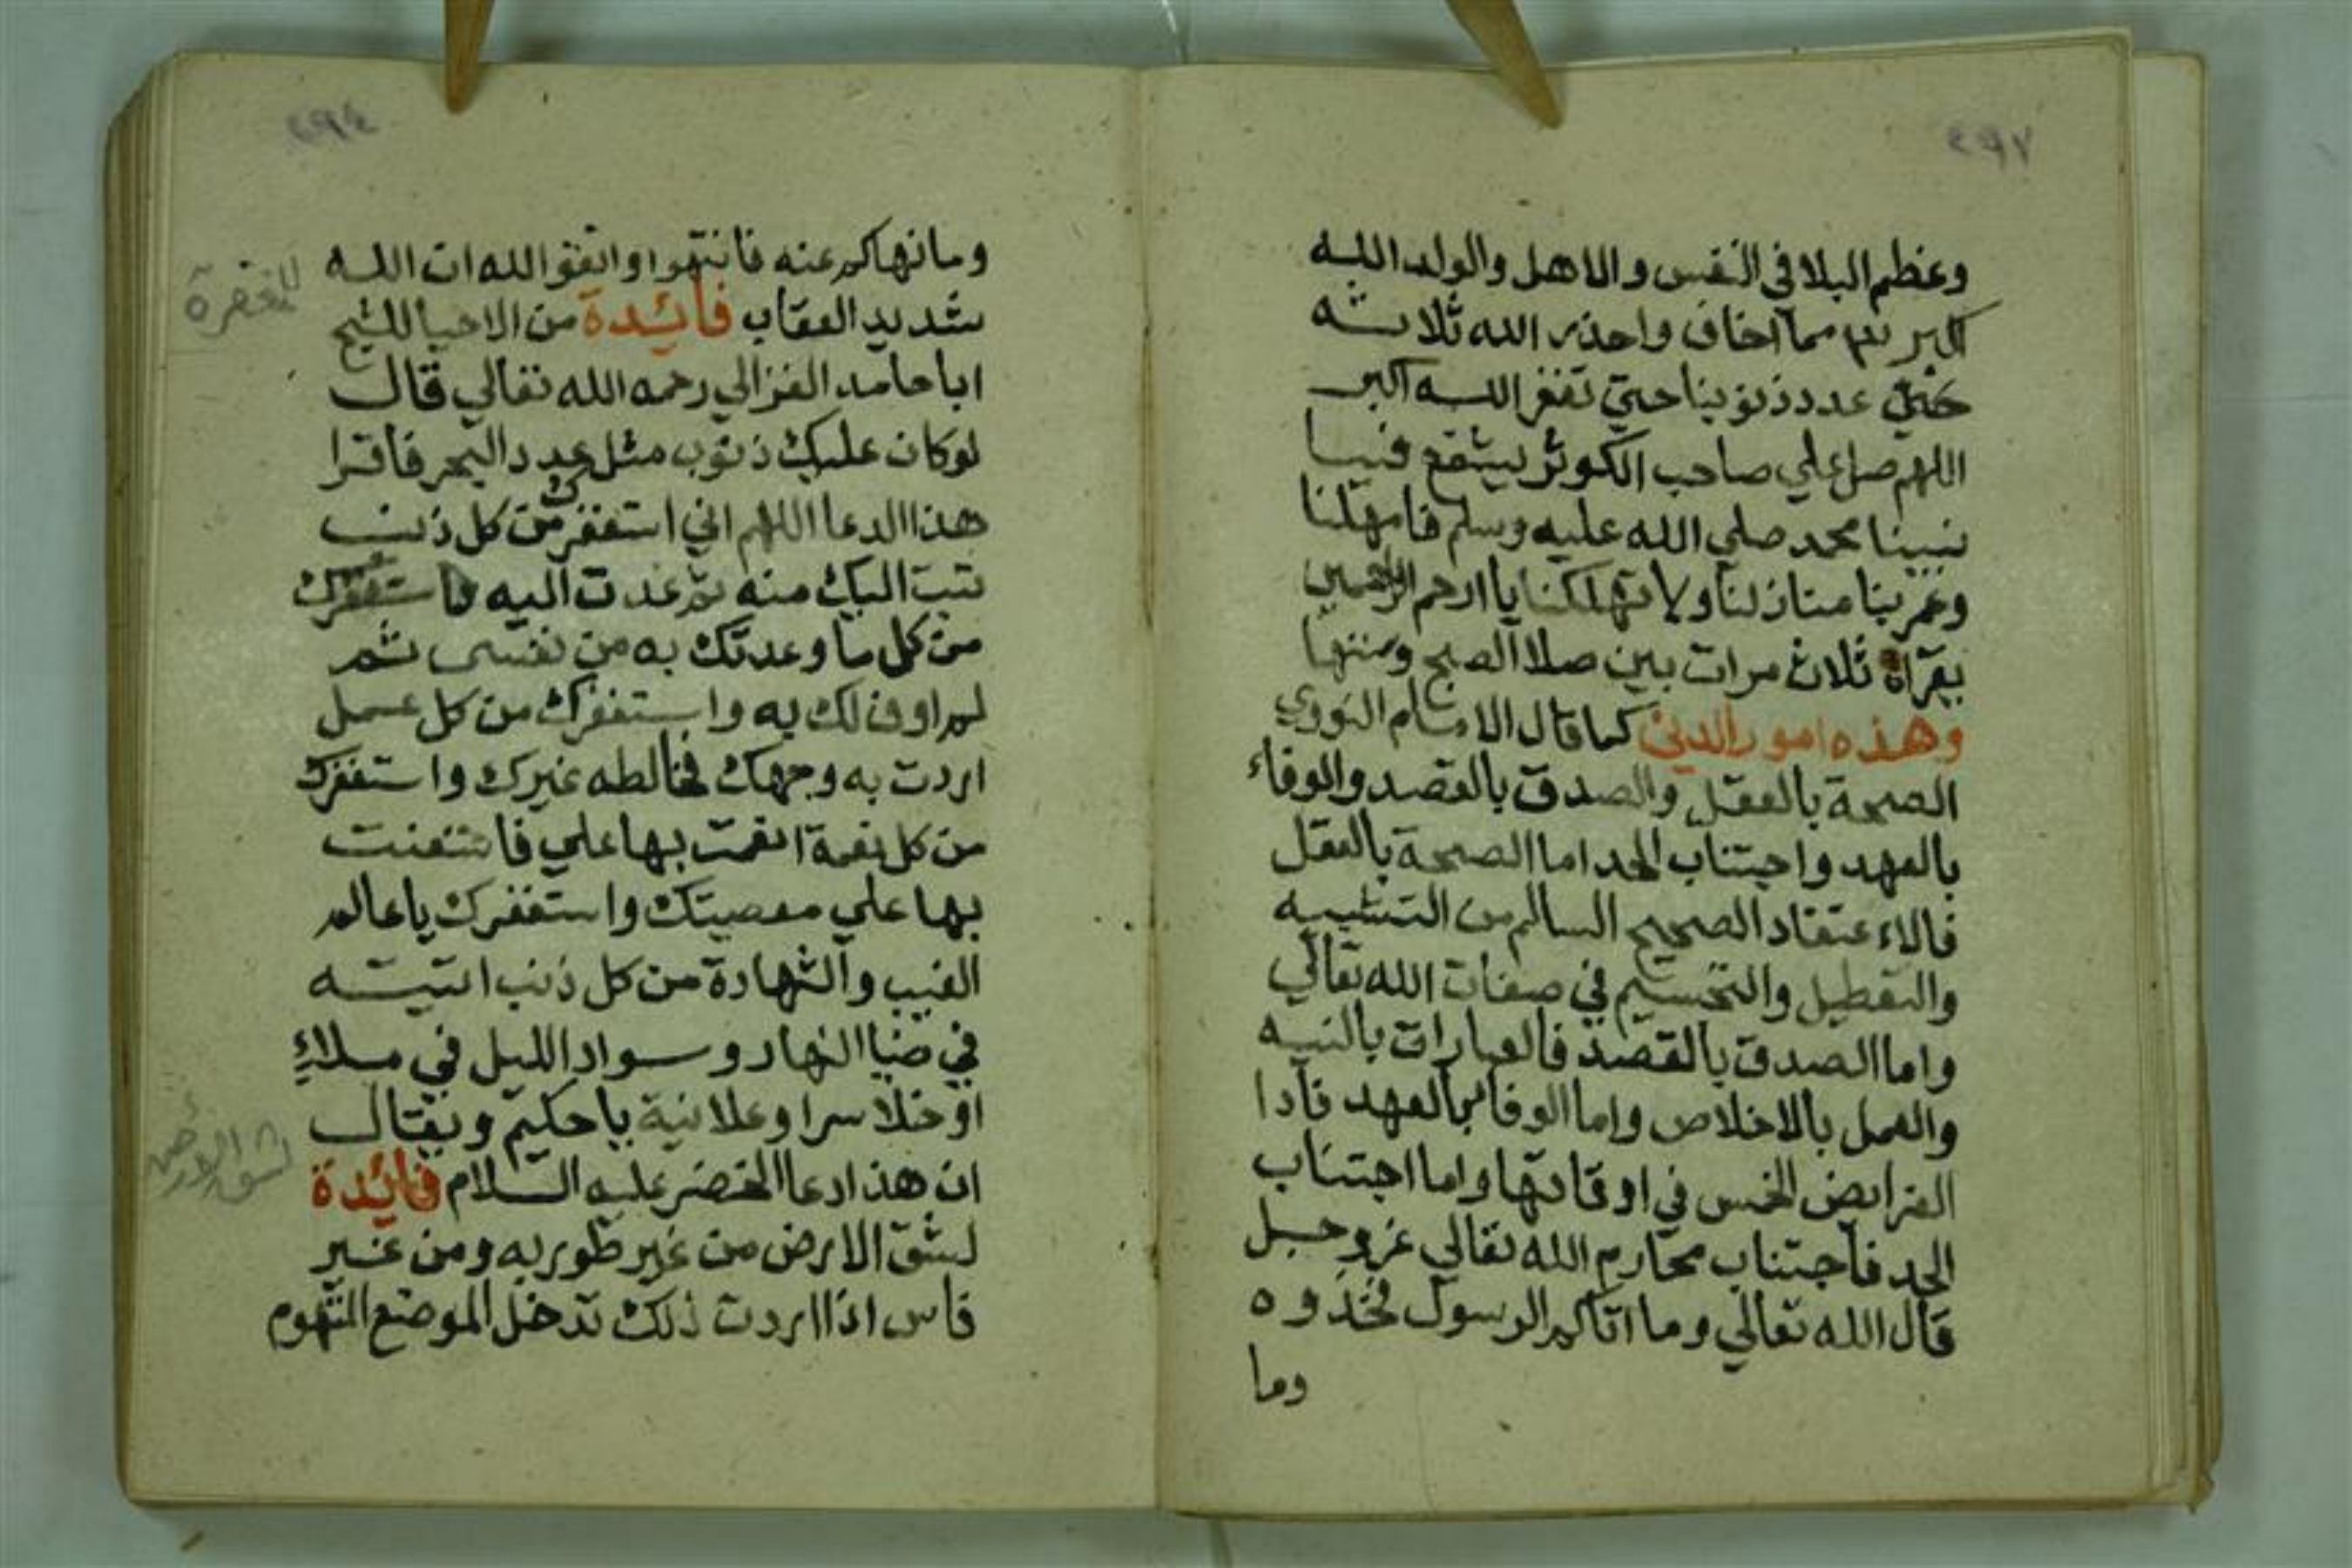 وعظم البلا في النفس والاهل والولد الله
اكبر مما اخاف واحذر الله ثلاثه
عدد ذنوبنا حتي تغفر الله اكبر
اللهم صل علي صاحب الكوثر يشفع فينا
نبينا محمد صلي الله عليه وسلم فامهلنا
وعمر بنا منازلنا ولا تهلكنا يا ارحم الراحمين
يقراة ثلاث مرات بين صلاا الصبح وسنتها
وهذه امور الدين كما قال الامام النووي
الصحة بالعقل والصدق بالقصد والوفاء
بالعهد واجتناب الحد اما الصحة بالعقل
فالاءعتقاد الصحيح السالم من التشبيه
والتعطيل والتجسيم في صفات الله تعالي
واما الصدق بالقصد فالعبارات بالنيه
والعمل بالاخلاص واما الوفا بالعهد فادا
الفرايض الخمس في اوقاتها واما اجتناب
الحد فاجتناب محارم الله تعالي عز وجل
قال الله تعالي وما اتاكم الرسول فخذوه
وما
وما نهاكم عنه فانتهوا واتقوا الله ان الله
شديد العقاب فائدة من الاحيا للشيخ
ابا حامد الغزالي رحمه الله تعالي قال
لو كان عليك ذنوب مثل عدد البحر فاقرا
هذا الدعا اللهم اني استغفرك من كل ذنب
تبت اليك منه ثم عدت اليه واستغفرك
من كل ما وعدتك به من نفسي ثم
لم اوف لك به واستغفرك من كل عمل
اردت به وجهك فخالطه غيرك واستغفرك
من كل نعمة انعمت بها علي فاستعنت
بها علي معصيتك واستغفرك يا عالم
الغيب والشهادة من كل ذنب اتيته
في ضيا النهار وسواد الليل في ملاءٍ
او خلا سرا وعلانية يا حكيم ويقال
ان هذا دعا الخضر عليه السلام فائدة
لشق الارض من غير طوريه ومن غير
فاس اذا اردت ذلك تدخل الموضع المتهوم
للمغفرة
لشق الارض